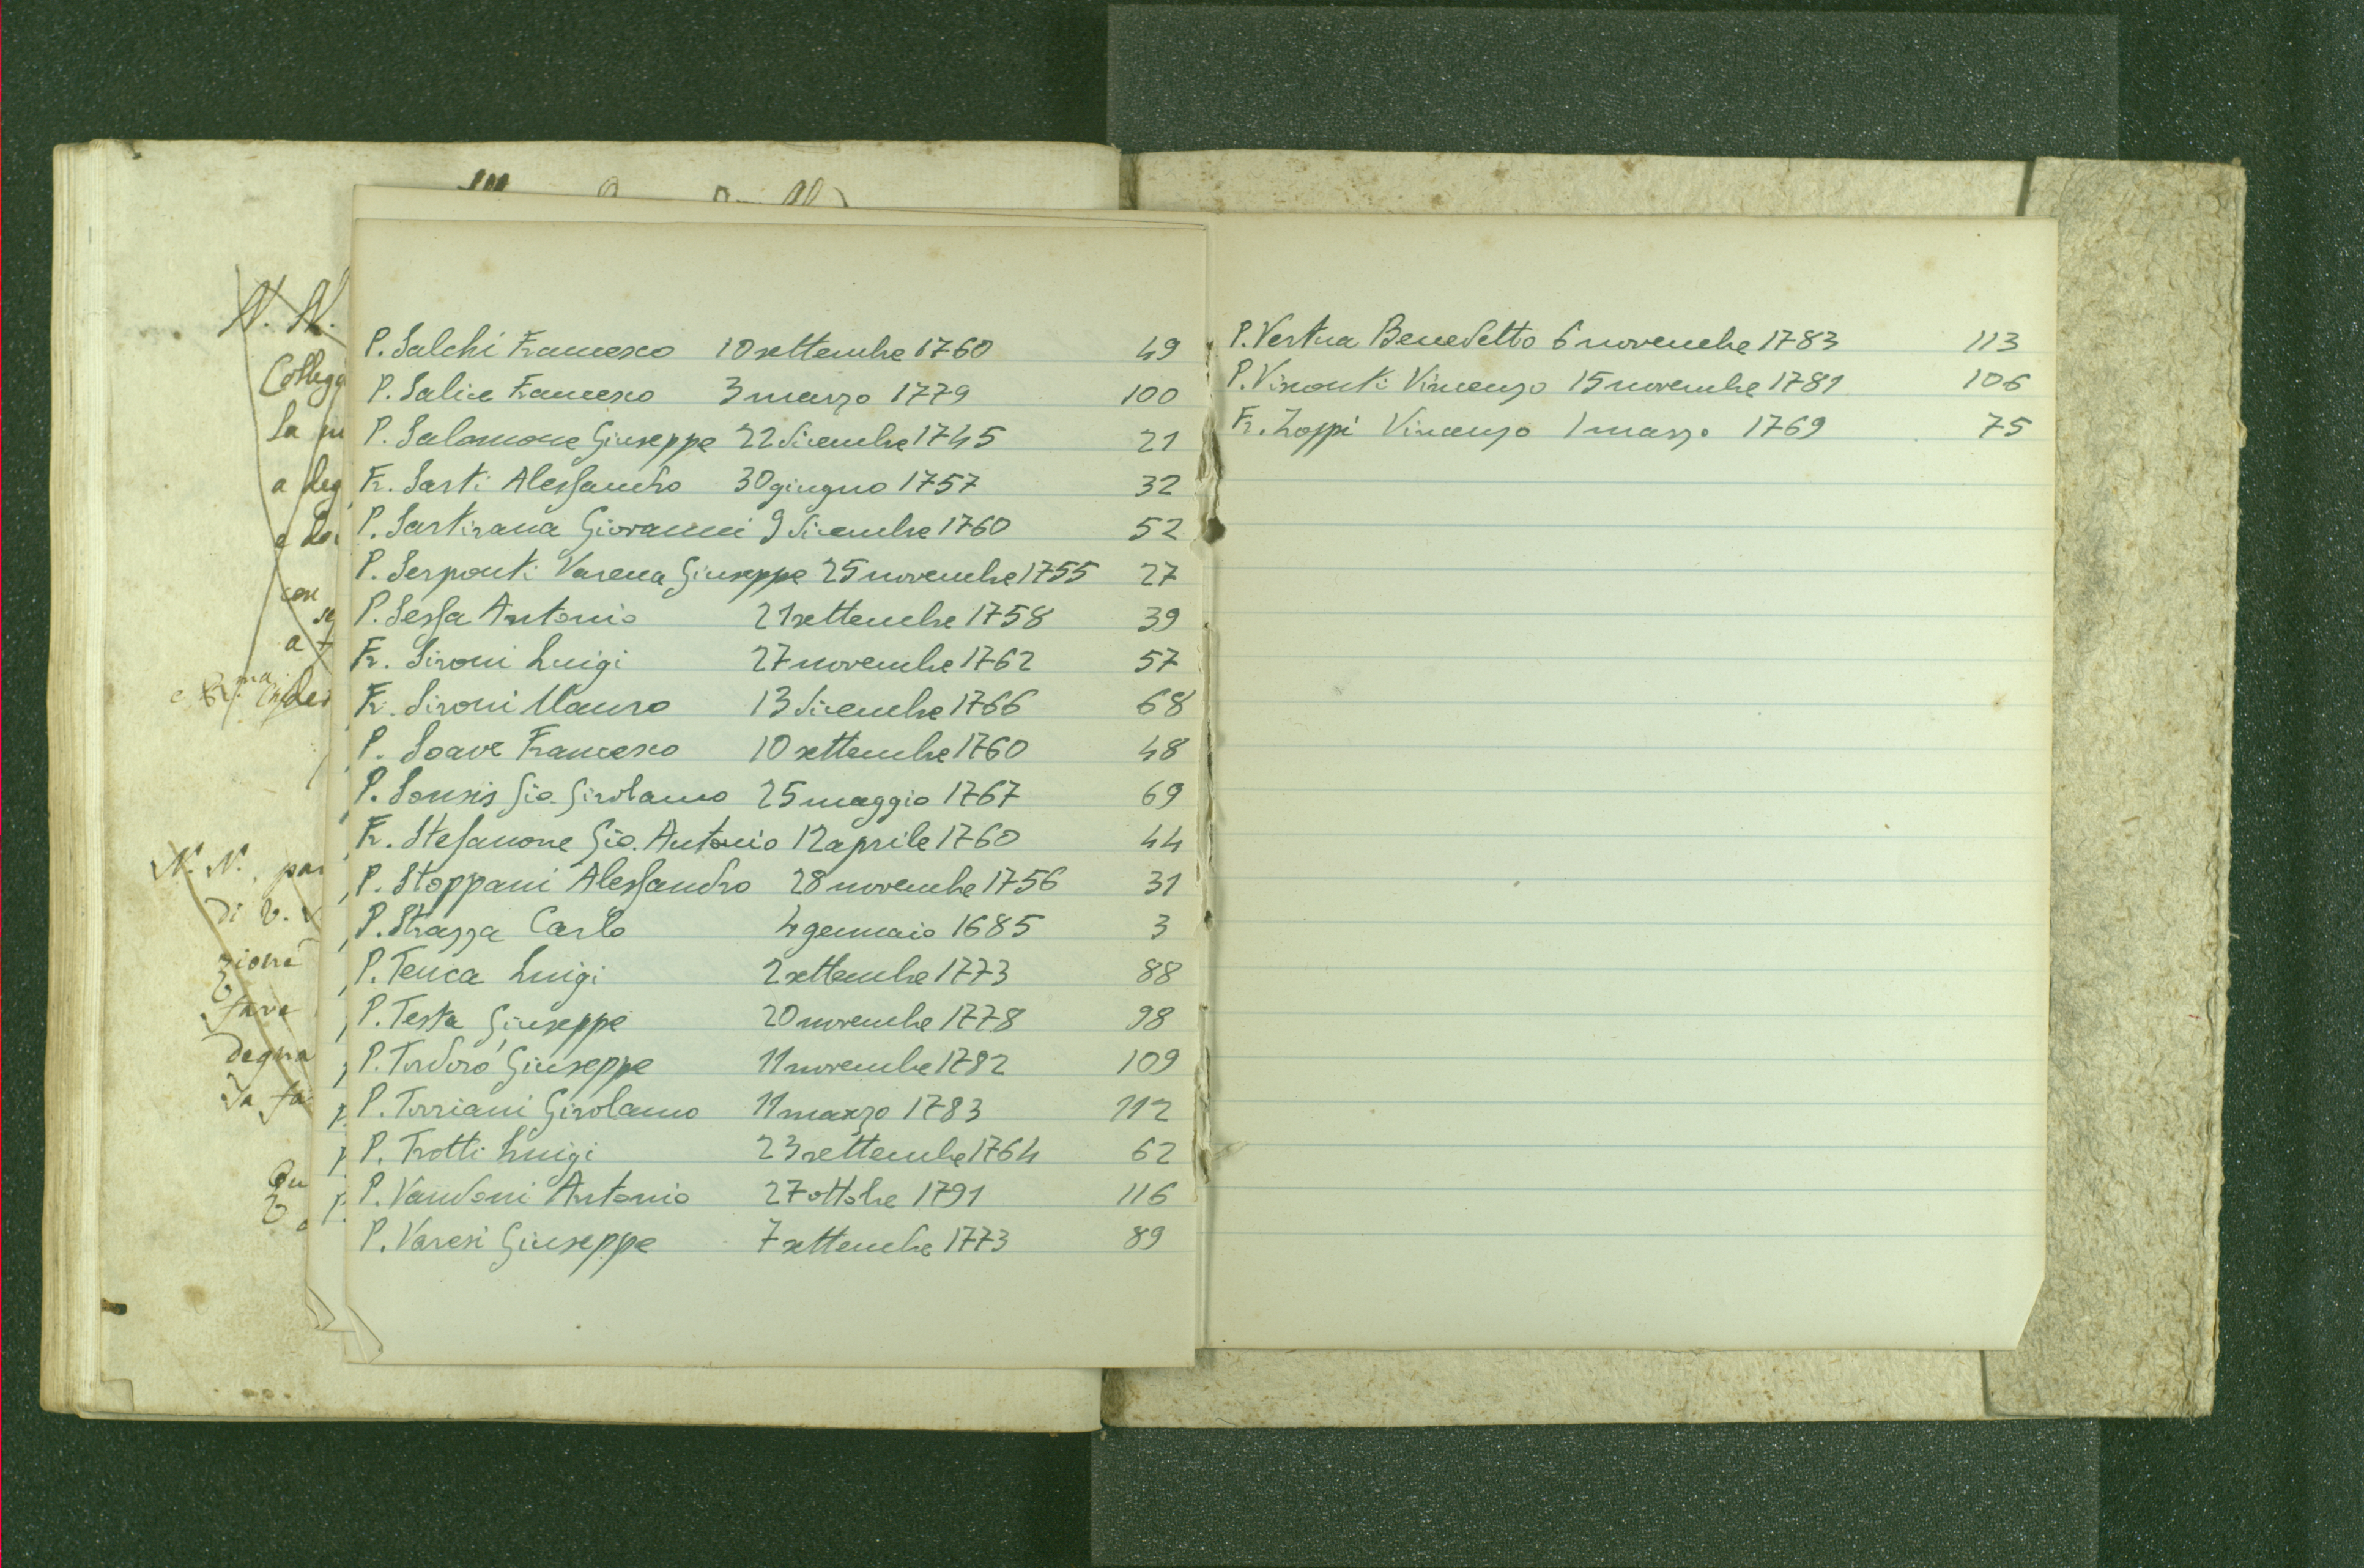 N. N.
Collegg
la
a deg
e
con
se
a
N. N., par
di V.
zione
fare
degna
Da fa
Qu
P. Salchi Francesco 10 settembre 1760 49
P. Salice Francesco 3 marzo 1779 100
P. Salomone Giuseppe 22 dicembre 1745 21
Fr. Sarti Alessandro 30 giugno 1757 32
P. Sartirana Giovanni 9 dicembre 1760 52
P. Serponti Varena Giuseppe 25 novembre 1755 27
P. Sessa Antonio 21 settembre 1758 39
Fr. Sironi Luigi 27 novembre 1762 57
Fr. Sironi Mauro 13 dicembre 1766 68
P. Soave Francesco 10 settembre 1760 48
P. Sonsis Gio. Girolamo 25 maggio 1767 69
Fr. Stefanone Gio. Antonio 12 aprile 1760 44
P. Stoppani Alessandro 28 novembre 1756 31
P. Strazza Carlo 4 gennaio 1685 3
P. Tenca Luigi 2 settembre 1773 88
P. Testa Giuseppe 20 novembre 1778 98
P. Tordorò Giuseppe 11 novembre 1782 109
P. Torriani Girolamo 11 marzo 1783 112
P. Trotti Luigi 23 settembre 1764 62
P. Vandoni Antonio 27 ottobre 1791 116
P. Varesi Giuseppe 7 settembre 1773 89
P. Vertua Benedetto 6 novembre 1783 113
P. Visconti Vincenzo 15 novembre 1781 106
Fr. Zoppi Vincenzo 1 marzo 1769 75